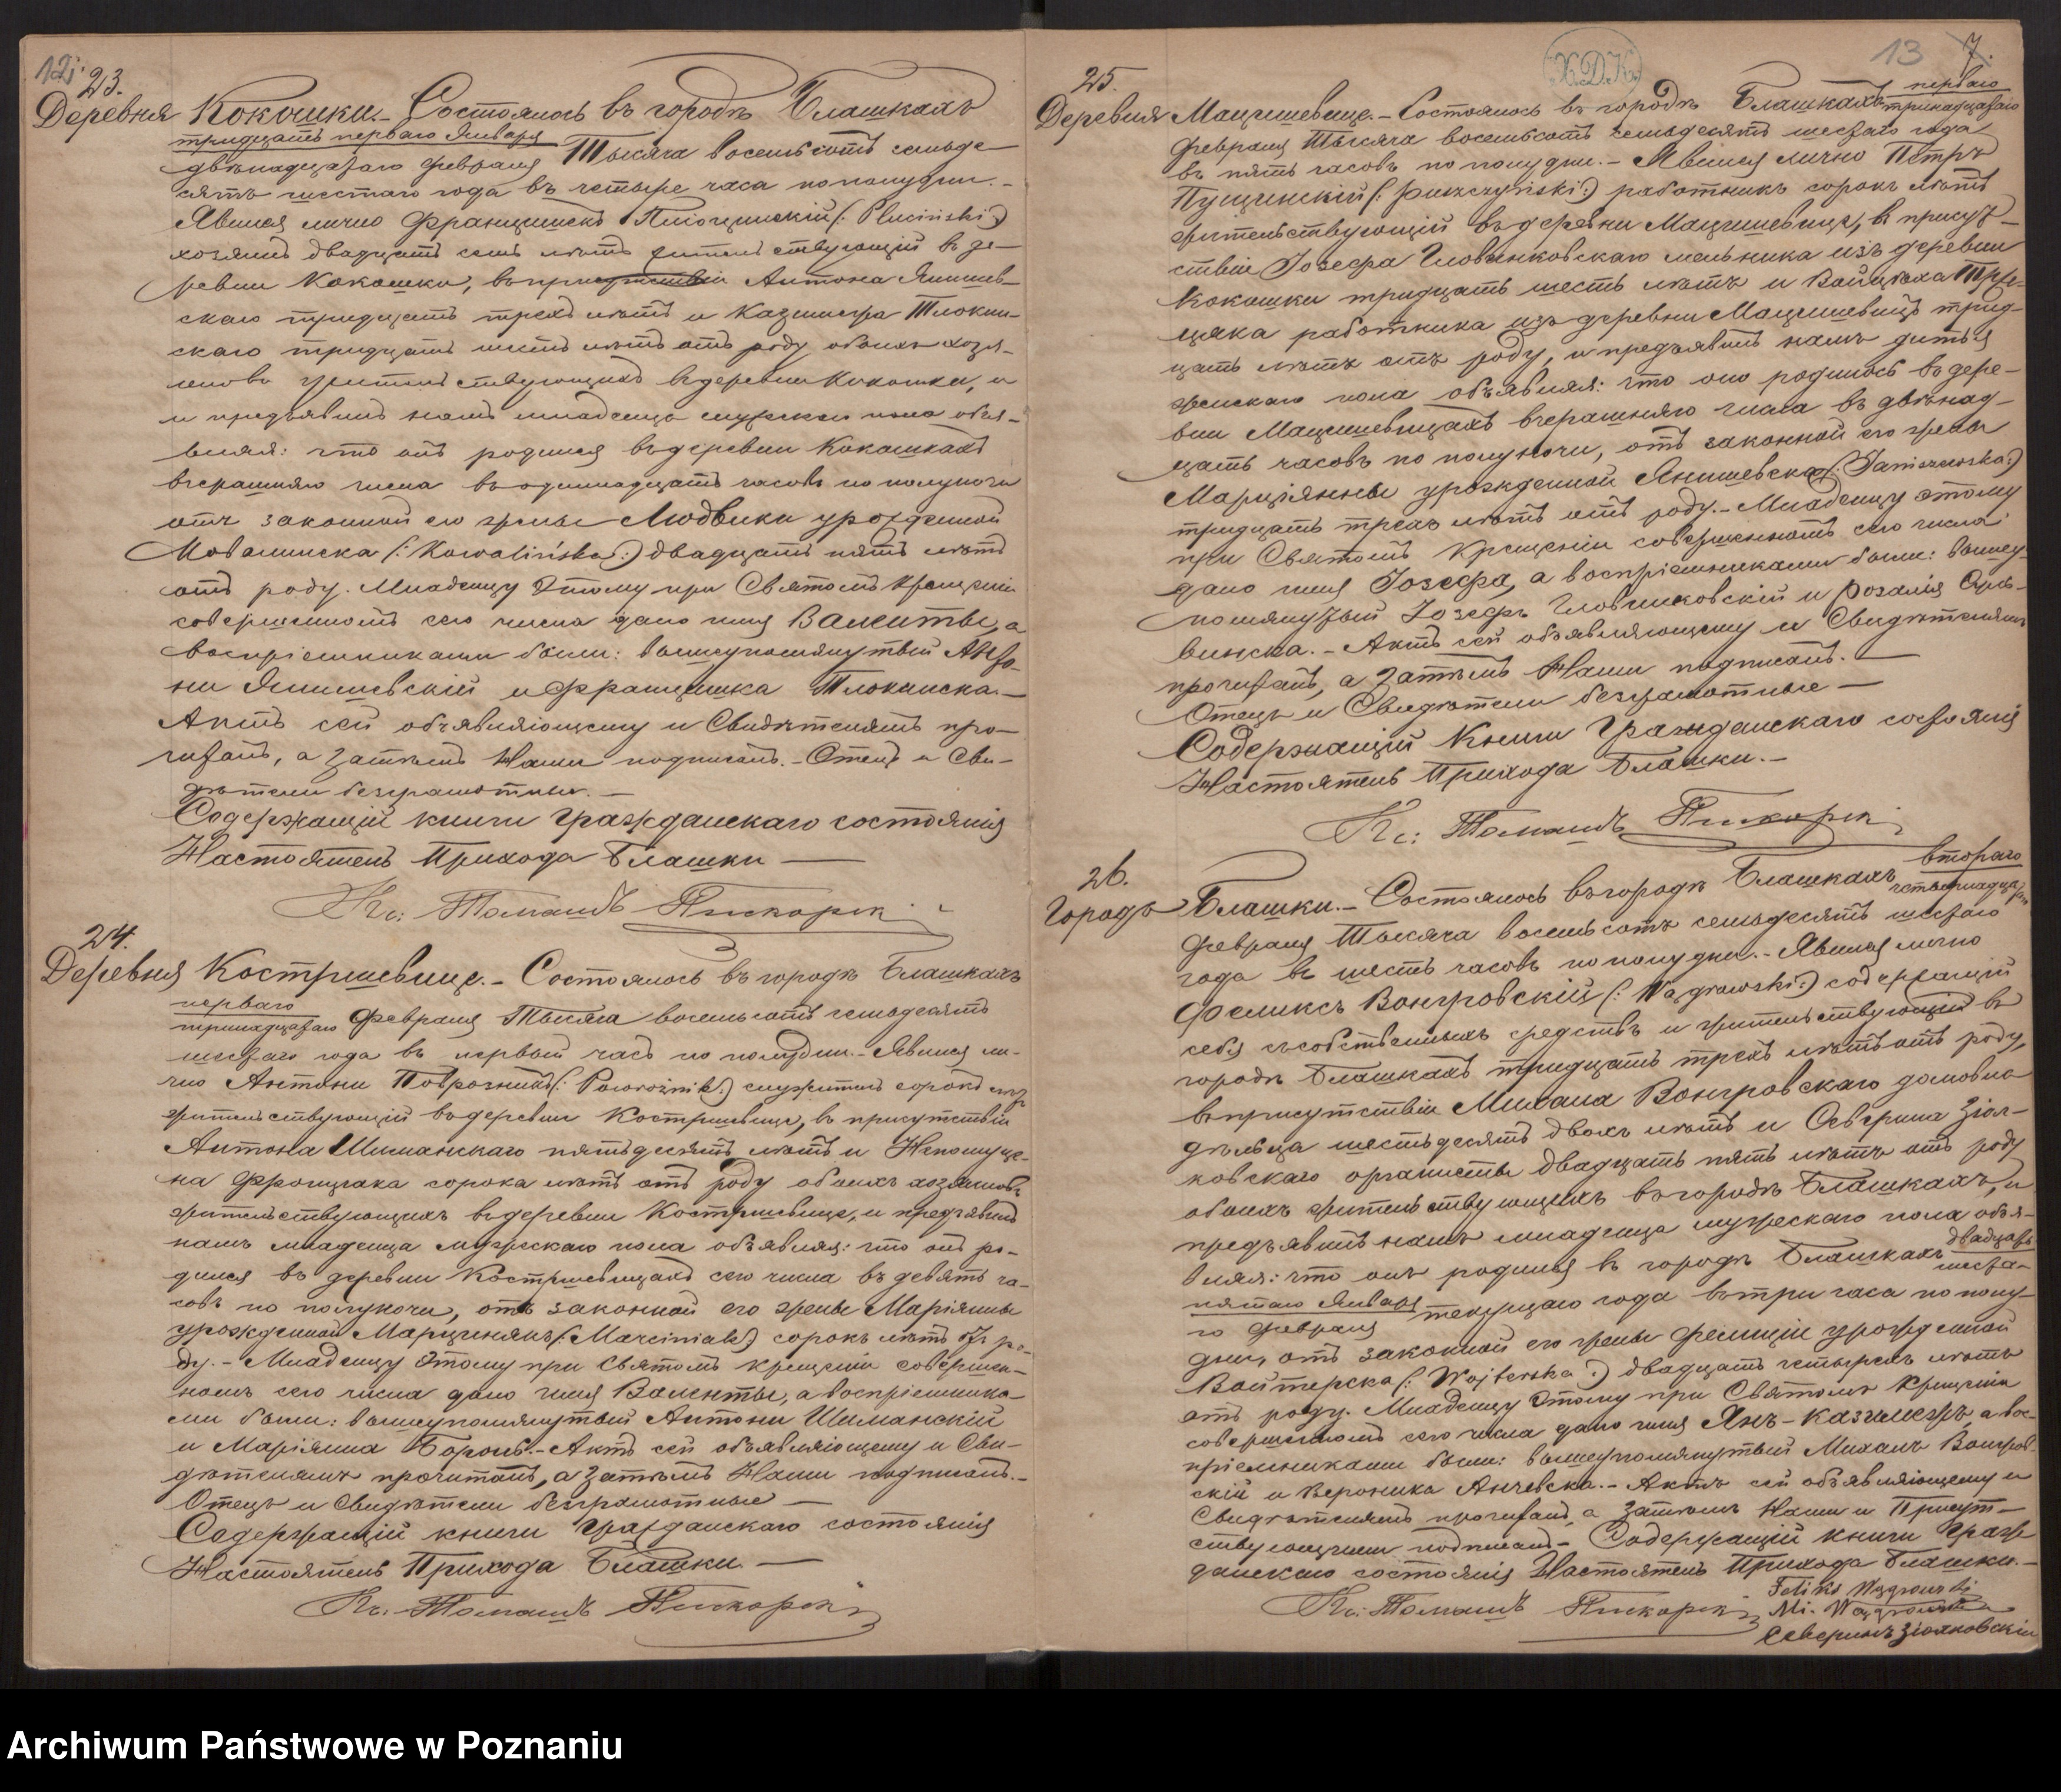 12.
23.
Деревня Кокошки. – Состоялось въ городѣ Блашкахъ
тридцать перваго Января
двѣнадцатаго Февраля Тысяча восемьсотъ семьде-
сятъ шестаго года въ четыре часа пополудни. –
Явился лично Францишекъ Плюцинскій (: Pluciński :)
хозяинъ двадцать семь лѣтъ жительствующій въ де-
ревни Кокошки, въ присутствіи Антона Янишев-
скаго тридцать трехъ лѣтъ и Казимера Тлокин-
скаго тридцать шесть лѣтъ отъ роду обоихъ хозя-
иновъ жительствующихъ въ деревни Кокошки, и
и предъявилъ намъ младенца мужескаго пола объя-
вляя: что онъ родился въ деревни Кокошкахъ
вчерашняго числа въ одиннадцать часовъ по полуночи
отъ законной его жены Людвики урожденной
Ковалинска (: Kowalińska :) двадцать пять лѣтъ
отъ роду. Младенцу этому при Святомъ Крещеніи
совершенномъ сего числа дано имя Валенты, а
воспріемниками были: вышеупомянутый Анто-
ни Янишевскій и Францишка Тлокинска. –
Актъ сей объявляющему и Свидѣтелямъ про-
читанъ, а затѣмъ Нами подписанъ. – Отецъ и Сви-
дѣтели безграмотные. –
Содержащій книги Гражданскаго состоянія
Настоятель Прихода Блашки –
Кс: Томашъ Пискорски
24.
Деревня Костршевице. – Состоялось въ городѣ Блашкахъ
перваго
тринадцатаго Февраля Тысяча восемьсотъ семьдесятъ
шестаго года въ первый часъ по полудни. – Явился ли-
чно Антони Поврозникъ (: Powroźnik :) служитель сорокъ лѣтъ
жительствующій въ деревни Костршевице, въ присутствіи
Антона Шиманскаго пятьдесятъ лѣтъ и Непомуце-
на Фронцзака сорока лѣтъ отъ роду обоихъ хозяиновъ
жительствующихъ въ деревни Костршевице, и предъявилъ
намъ младенца мужескаго пола объявляя: что онъ ро-
дился въ деревни Костршевицахъ сего числа въ девять ча-
совъ по полуночи, отъ законной его жены Маріянны
урожденной Марцинякъ (: Marciniak :) сорокъ лѣтъ отъ ро-
ду. – Младенцу этому при Святомъ крещеніи совершен-
номъ сего числа дано имя Валенты, а воспріемника-
ми были: вышеупомянутый Антони Шиманскій
и Маріянна Боронь. – Актъ сей объявляющему и Сви-
дѣтелямъ прочитанъ, а затѣмъ Нами подписанъ. –
Отецъ и Свидѣтели безграмотные –
Содержащій книги Гражданскаго состоянія
Настоятель Прихода Блашки –
Кс: Томашъ Пискорски
Х.Д.К.
13
7.
25.
перваго
Деревня Мацишевице. – Состоялось въ городѣ Блашкахъ тринадцатаго
Февраля Тысяча восемьсотъ семьдесятъ шестаго года
въ пять часовъ по полудни. – Явился лично Петръ
Пущинскій (: Puszczyński :) работникъ сорокъ лѣтъ
жительствующій въ деревни Мацишевице, въ присут-
ствіи Іозефа Гловинковскаго мельника изъ деревни
Кокошки тридцать шесть лѣтъ и Войцѣха Трже-
цяка работника изъ деревни Мацишевицъ трид-
цать лѣтъ отъ роду, и предъявилъ намъ дитья
женскаго пола объявляя: что оно родилось въ дере-
вни Мацишевицахъ вчерашняго числа въ двѣнад-
цать часовъ по полуночи, отъ законной его жены
Марціянны урожденной Янишевска (: Janiszewska :)
тридцать трехъ лѣтъ отъ роду. – Младенцу этому
при Святомъ Крещеніи совершенномъ сего числа
дано имя Іозефа, а воспріемниками были: вышеу-
помянутый Іозефъ Гловинковскій и Розалія
винска. – Актъ сей объявляющему и Свидѣтелямъ
прочитанъ, а затѣмъ Нами подписанъ. –
Отецъ и Свидѣтели безграмотные –
Содержащій Книги Гражданскаго состоянія
Настоятель Прихода Блашки. –
Кс: Томашъ Пискорски
26.
втораго
Городъ Блашки. – Состоялось въ городѣ Блашкахъ четырнадцатаго
Февраля Тысяча восемьсотъ семьдесятъ шестаго
года въ шесть часовъ по полудни. – Явился лично
Феликсъ Вонгровскій (: Wągrowski :) содержащій
себя съ собственныхъ средствъ и жительствующій въ
городѣ Блашкахъ тридцать трехъ лѣтъ отъ роду,
въ присутствіи Михала Вонгровскаго домовла-
дѣльца шестьдесятъ двохъ лѣтъ и Северина Зіол-
ковскаго органисты двадцать пять лѣтъ отъ роду
обоихъ жительствующихъ въ городѣ Блашкахъ, и
предъявилъ намъ младенца мужескаго пола объя-
вляя: что онъ родился въ городѣ Блашкахъ двадцать
шеста-
пятаго Января
го Февраля текущаго года въ три часа по полу-
дни, отъ законной его жены Фелиціи урожденной
Войтерска (: Wojterska :) двадцать четырехъ лѣтъ
отъ роду. Младенцу этому при Святомъ Крещеніи
совершенномъ сего числа дано имя Янъ-Казимеръ, а вос-
пріемниками были: вышеупомянутый Михалъ Вонгров-
скій и Вероника Анчевска. – Актъ сей объявляющему и
Свидѣтелямъ прочитанъ, а затѣмъ Нами и Присут-
ствующими подписанъ – Содержащій книги Граж-
данскаго состоянія Настоятель Прихода Блашки. –
Кс: Томашъ Пискорски
Feliks Wągrowski
Mi. Wągrowski
Северинъ Зіолковскій
Archiwum Państwowe w Poznaniu